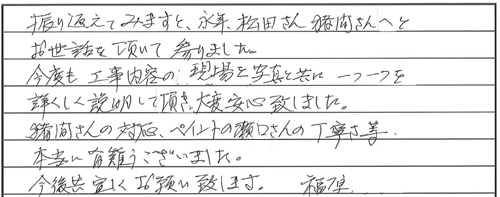 振り返えてみますと、永年、松田さん 猪岡さんへと
お世話を頂いて参りました。
今度も工事内容の現場を写真と共に一つ一つを
詳くしく説明して頂き大変安心致しました。
猪岡さんの対応、ペイントの瀬口さんの丁寧さ等、
本当に有難うございました。
今後共宜しくお願い致します。 福原